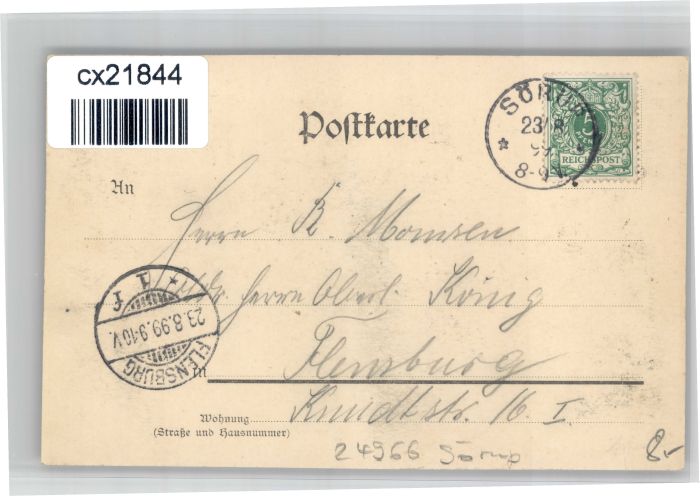 cx21844
SÖRUP
23/8
99
8-9V
5
REICHSPOST
Postkarte
An
Herrn K. Momsen
Adr. Herrn Oberl. König
1 f
23.8.99.9-10V.
FLENSBURG
in Flensburg
Knudtstr. 16 I.
Wohnung
(Straße und Hausnummer)
24966 Sörup
8.-